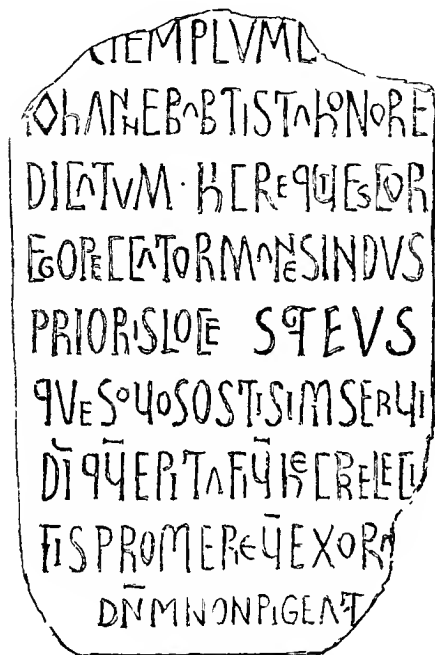 TEMPLVMD
IOhANNEBABTISTAhONORE
DICATVM · hCREqIESCOR
EGOPECCATORMANESINDVS
PRIORISLOCE SqTEVS
qVESOVOSOSTISIMSERVI
DI̅ qV̅EPITAFIV̅ heCRELECI
TISPROMEREV̅EXORA
DN̅MNONPIGEAT